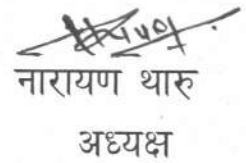 नारायण थारु
अध्यक्ष